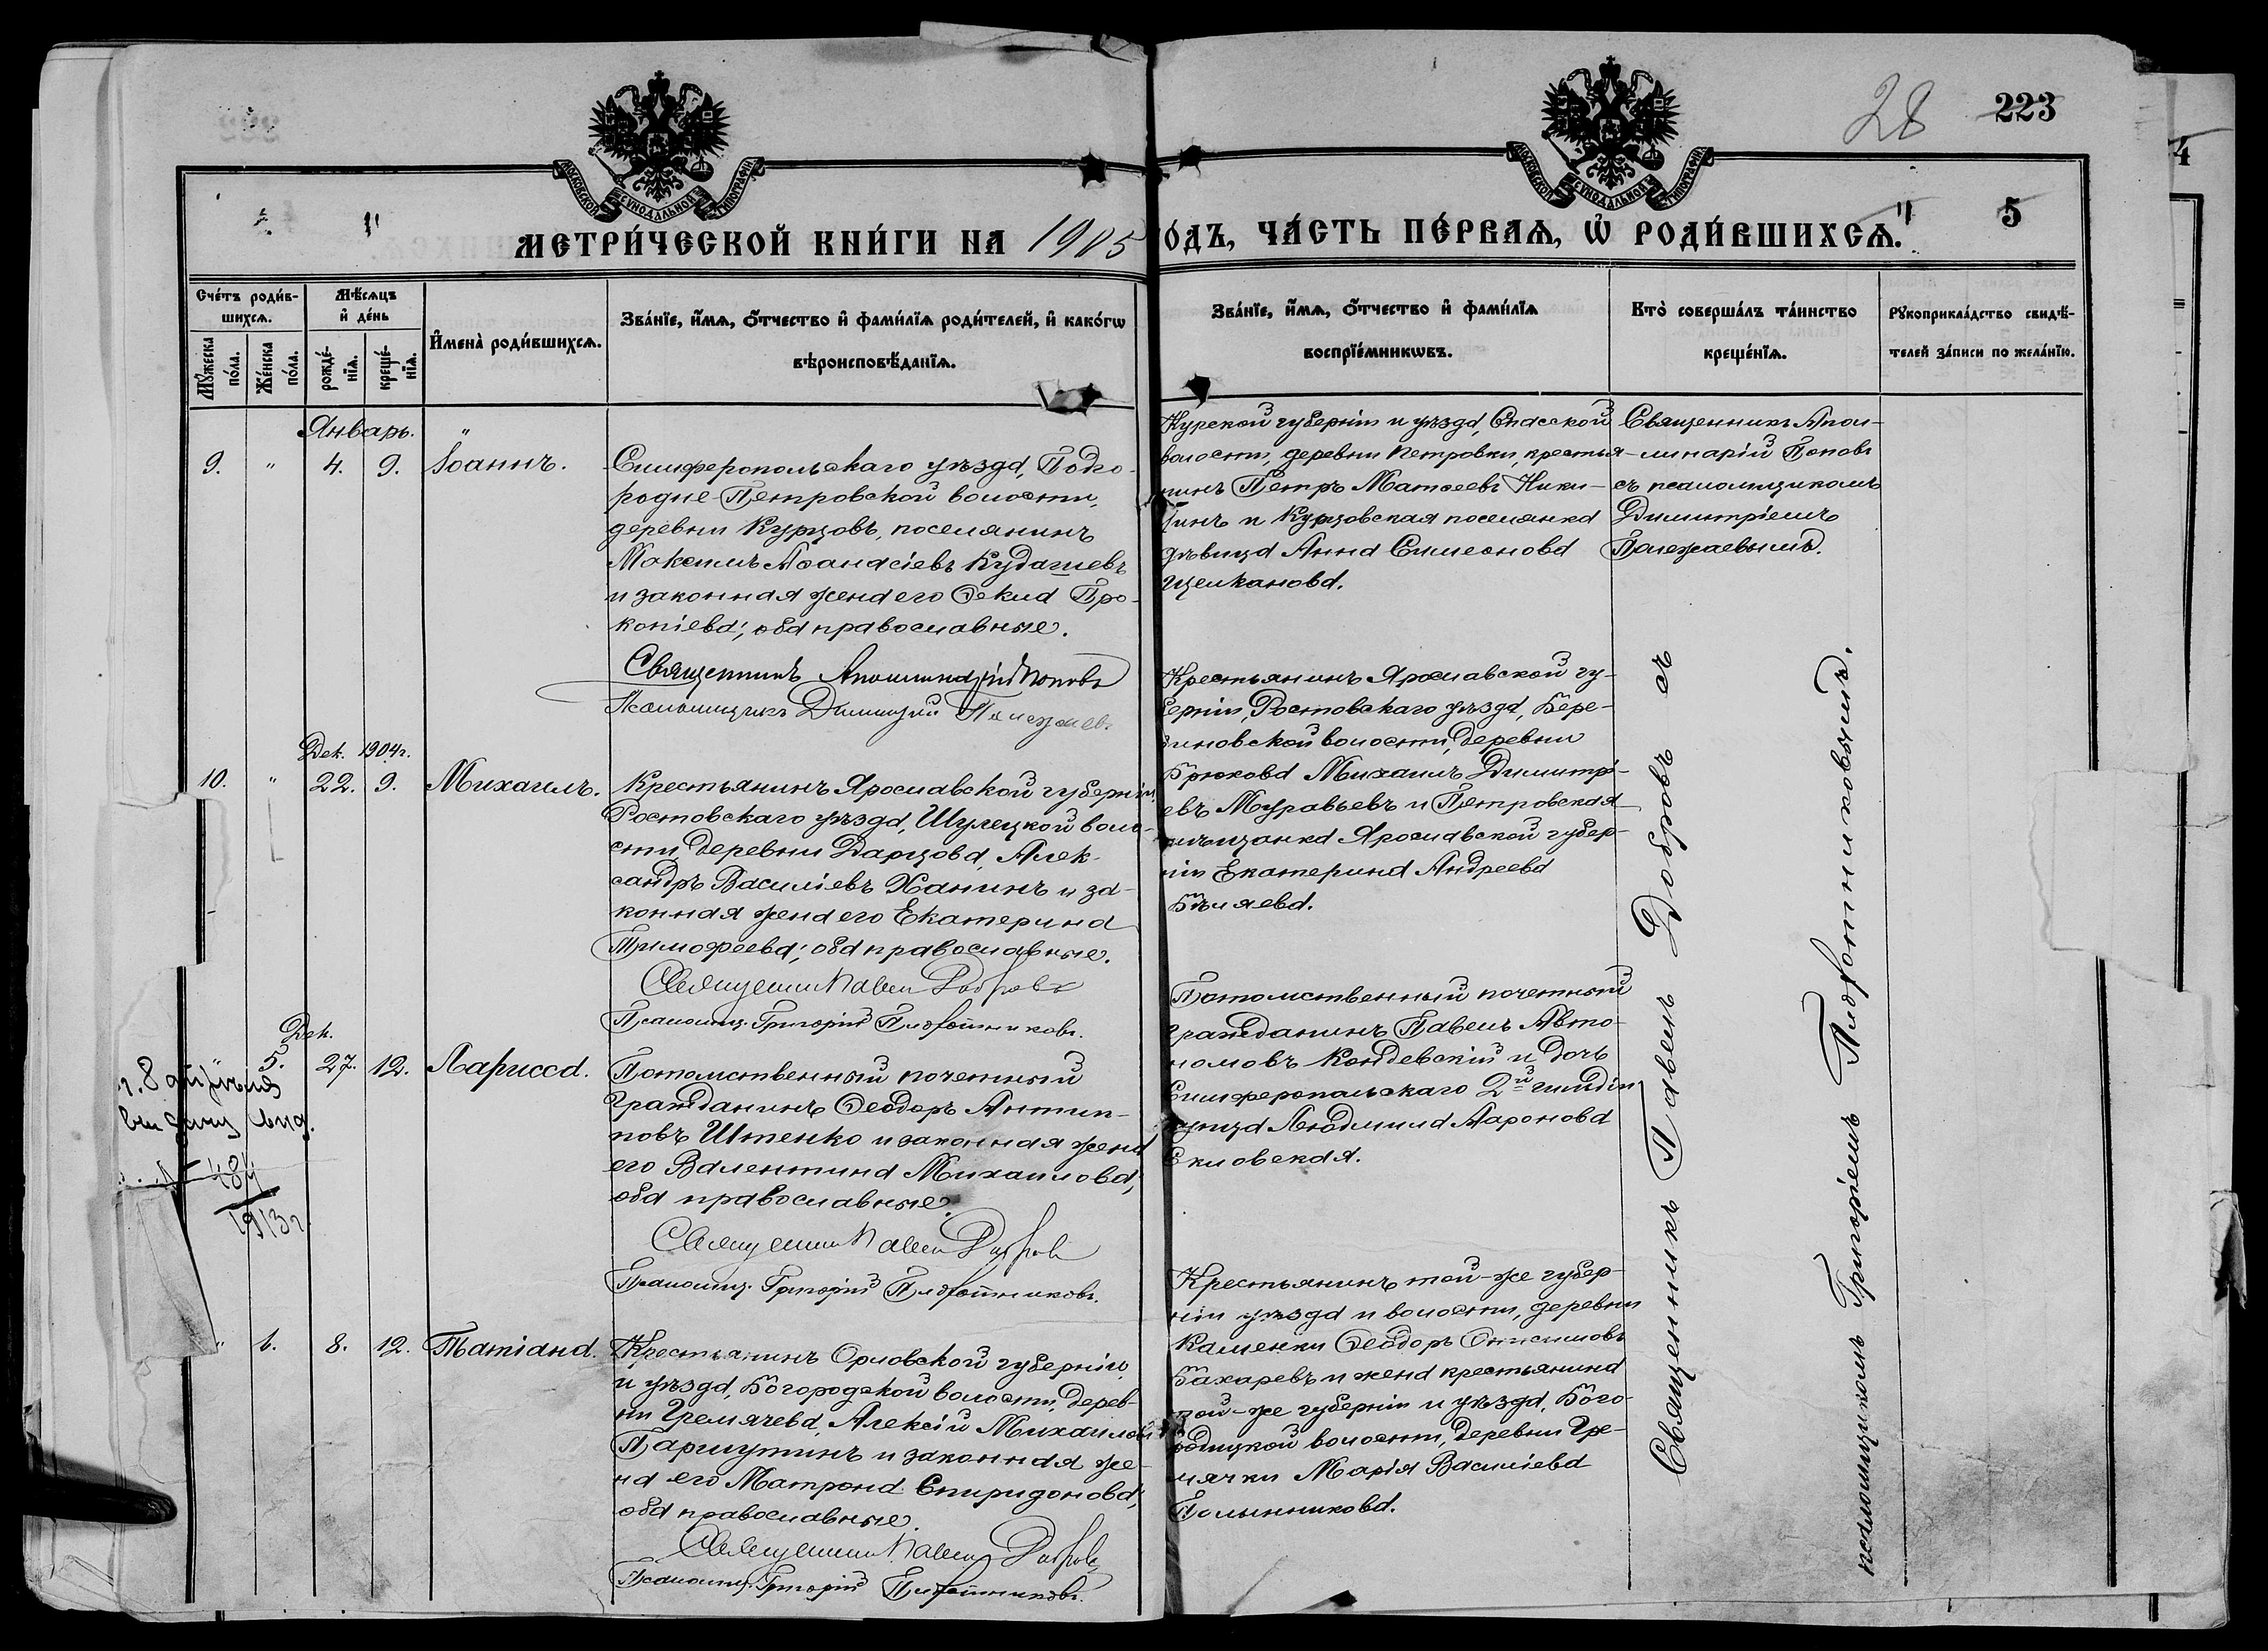 28 223
МОСКОВСКОЙ СѴНОДАЛЬНОЙ ТИПОГРАФІИ
МОСКОВСКОЙ СѴНОДАЛЬНОЙ ТИПОГРАФІИ
5
МЕТРИ́ЧЕСКОЙ КНИ́ГИ НА 1905
ОДЪ, ЧА́СТЬ ПЕ́РВАѦ, Ѽ РОДИ́ВШИХСѦ.
Сче́тъ роди́в-
шихсѧ.
Мꙋ́жеска по́ла.
Же́нска по́ла.
Мѣ́сѧцъ и҆ де́нь
рожде́-нїѧ.
креще́-нїѧ.
И҆мена̀ роди́вшихсѧ.
Зва́нїе, и҆́мѧ, ѻ҆́тчество и҆ фами́лїѧ роди́телей, и҆ како́гѡ
вѣроисповѣ́данїѧ.
Зва́нїе, и҆́мѧ, ѻ҆́тчество и҆ фами́лїѧ
воспрїе́мникѡвъ.
Кто̀ соверша́лъ та́инство
креще́нїѧ.
Рꙋкоприкла́дство свидѣ́-
телей за́писи по жела́нїю.
Январь.
9. " 4. 9. Іоаннъ.
Симферопольскаго уѣзда, Подго-
родне-Петровской волости,
деревни Курцовъ, поселянинъ
Максимъ Аѳанасіевъ Кудашевъ
и законная жена его Ѳекла Про-
копіева; оба православные.
Священникъ Аполлинарій Поповъ
Псаломщикъ Димитрій Полежаевъ.
Курской губерніи и уѣзда, Спасской
волости, деревни Петровки, крестья-
нинъ Петръ Матѳеевъ Ники-
тинъ и Курцовская поселянка
дѣвица Анна Симеонова
Щелканова.
Священникъ Апол-
линарій Поповъ
съ псаломщикомъ
Димитріемъ
Полежаевымъ.
Дек. 1904г.
10. " 22. 9. Михаилъ.
Крестьянинъ Ярославской губерніи,
Ростовскаго уѣзда, Шулецкой воло-
сти, деревни Дарцова, Алек-
сандръ Василіевъ Ханинъ и за-
конная жена его Екатерина
Тимофеева; оба православные.
Священникъ Павелъ Добровъ
Псаломщ. Григорій Плотниковъ.
Крестьянинъ Ярославской гу-
берніи, Ростовскаго уѣзда, Бере-
зиновской волости, деревни
Брюкова Михаилъ Димитрі-
евъ Муравьевъ и Петровская
мѣщанка Ярославской губер-
ніи Екатерина Андреева
Бѣляева.
Дек.
" 5. 27. 12. Ларисса.
484
1913г.
Потомственный почетный
гражданинъ Ѳеодоръ Антип-
повъ Штенко и законная жена
его Валентина Михаилова;
оба православные.
Священникъ Павелъ Добровъ
Псаломщ. Григорій Плотниковъ.
Потомственный почетный
гражданинъ Павелъ Авто-
номовъ Кондевскій и дочь
Симферопольскаго 2й гильдіи
купца Людмила Ааронова
Екловская.
" 6. 8. 12. Татіана.
Крестьянинъ Орловской губерніи
и уѣзда, Богородской волости, дерев-
ни Гремячева, Алексій Михаиловъ
Паршутинъ и законная же-
на его Матрона Спиридонова;
оба православные.
Священникъ Павелъ Добровъ
Псаломщ. Григорій Плотниковъ.
Крестьянинъ той-же губер-
ніи уѣзда и волости, деревни
Каменки Ѳеодоръ Онисимовъ
Бахаревъ и жена крестьянина
той-же губерніи и уѣзда, Бого-
родицкой волости, деревни Гре-
мячки Марія Василіева
Полынникова.
Священникъ Павелъ Добровъ съ
псаломщикомъ Григоріемъ Плотниковымъ.
4